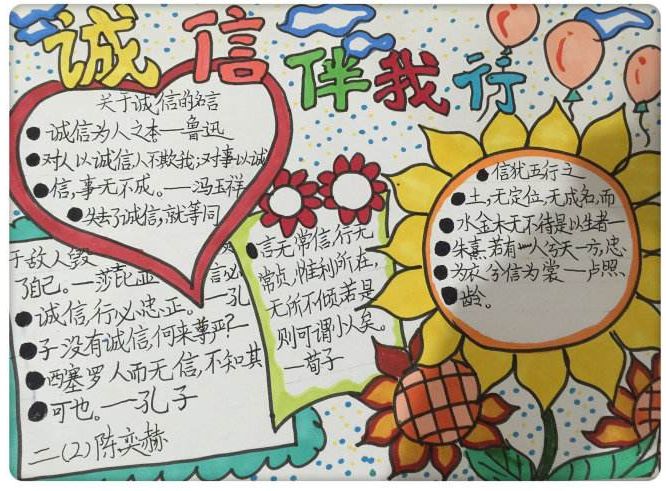 诚信伴我行
关于诚信的名言
诚信为人之本——鲁迅
对人以诚信,人不欺我;对事以诚
信,事无不成。——冯玉祥
失去了诚信,就等同
于敌人毁
了自己。——莎
言必
诚信,行必忠正。——孔
子 没有诚信,何来尊严?—
西塞罗 人而无信,不知其
可也。——孔子
二(2)陈奕赫
言无常信,行无
常贞,惟利所在,
无所不倾,若是
则可谓小人矣。
——荀子
信犹五行之
土,无定位,无成名,而
水金木无不待是以生者—
朱熹 若有一人兮天一方,忠
为衣兮信为裳——卢照
龄。